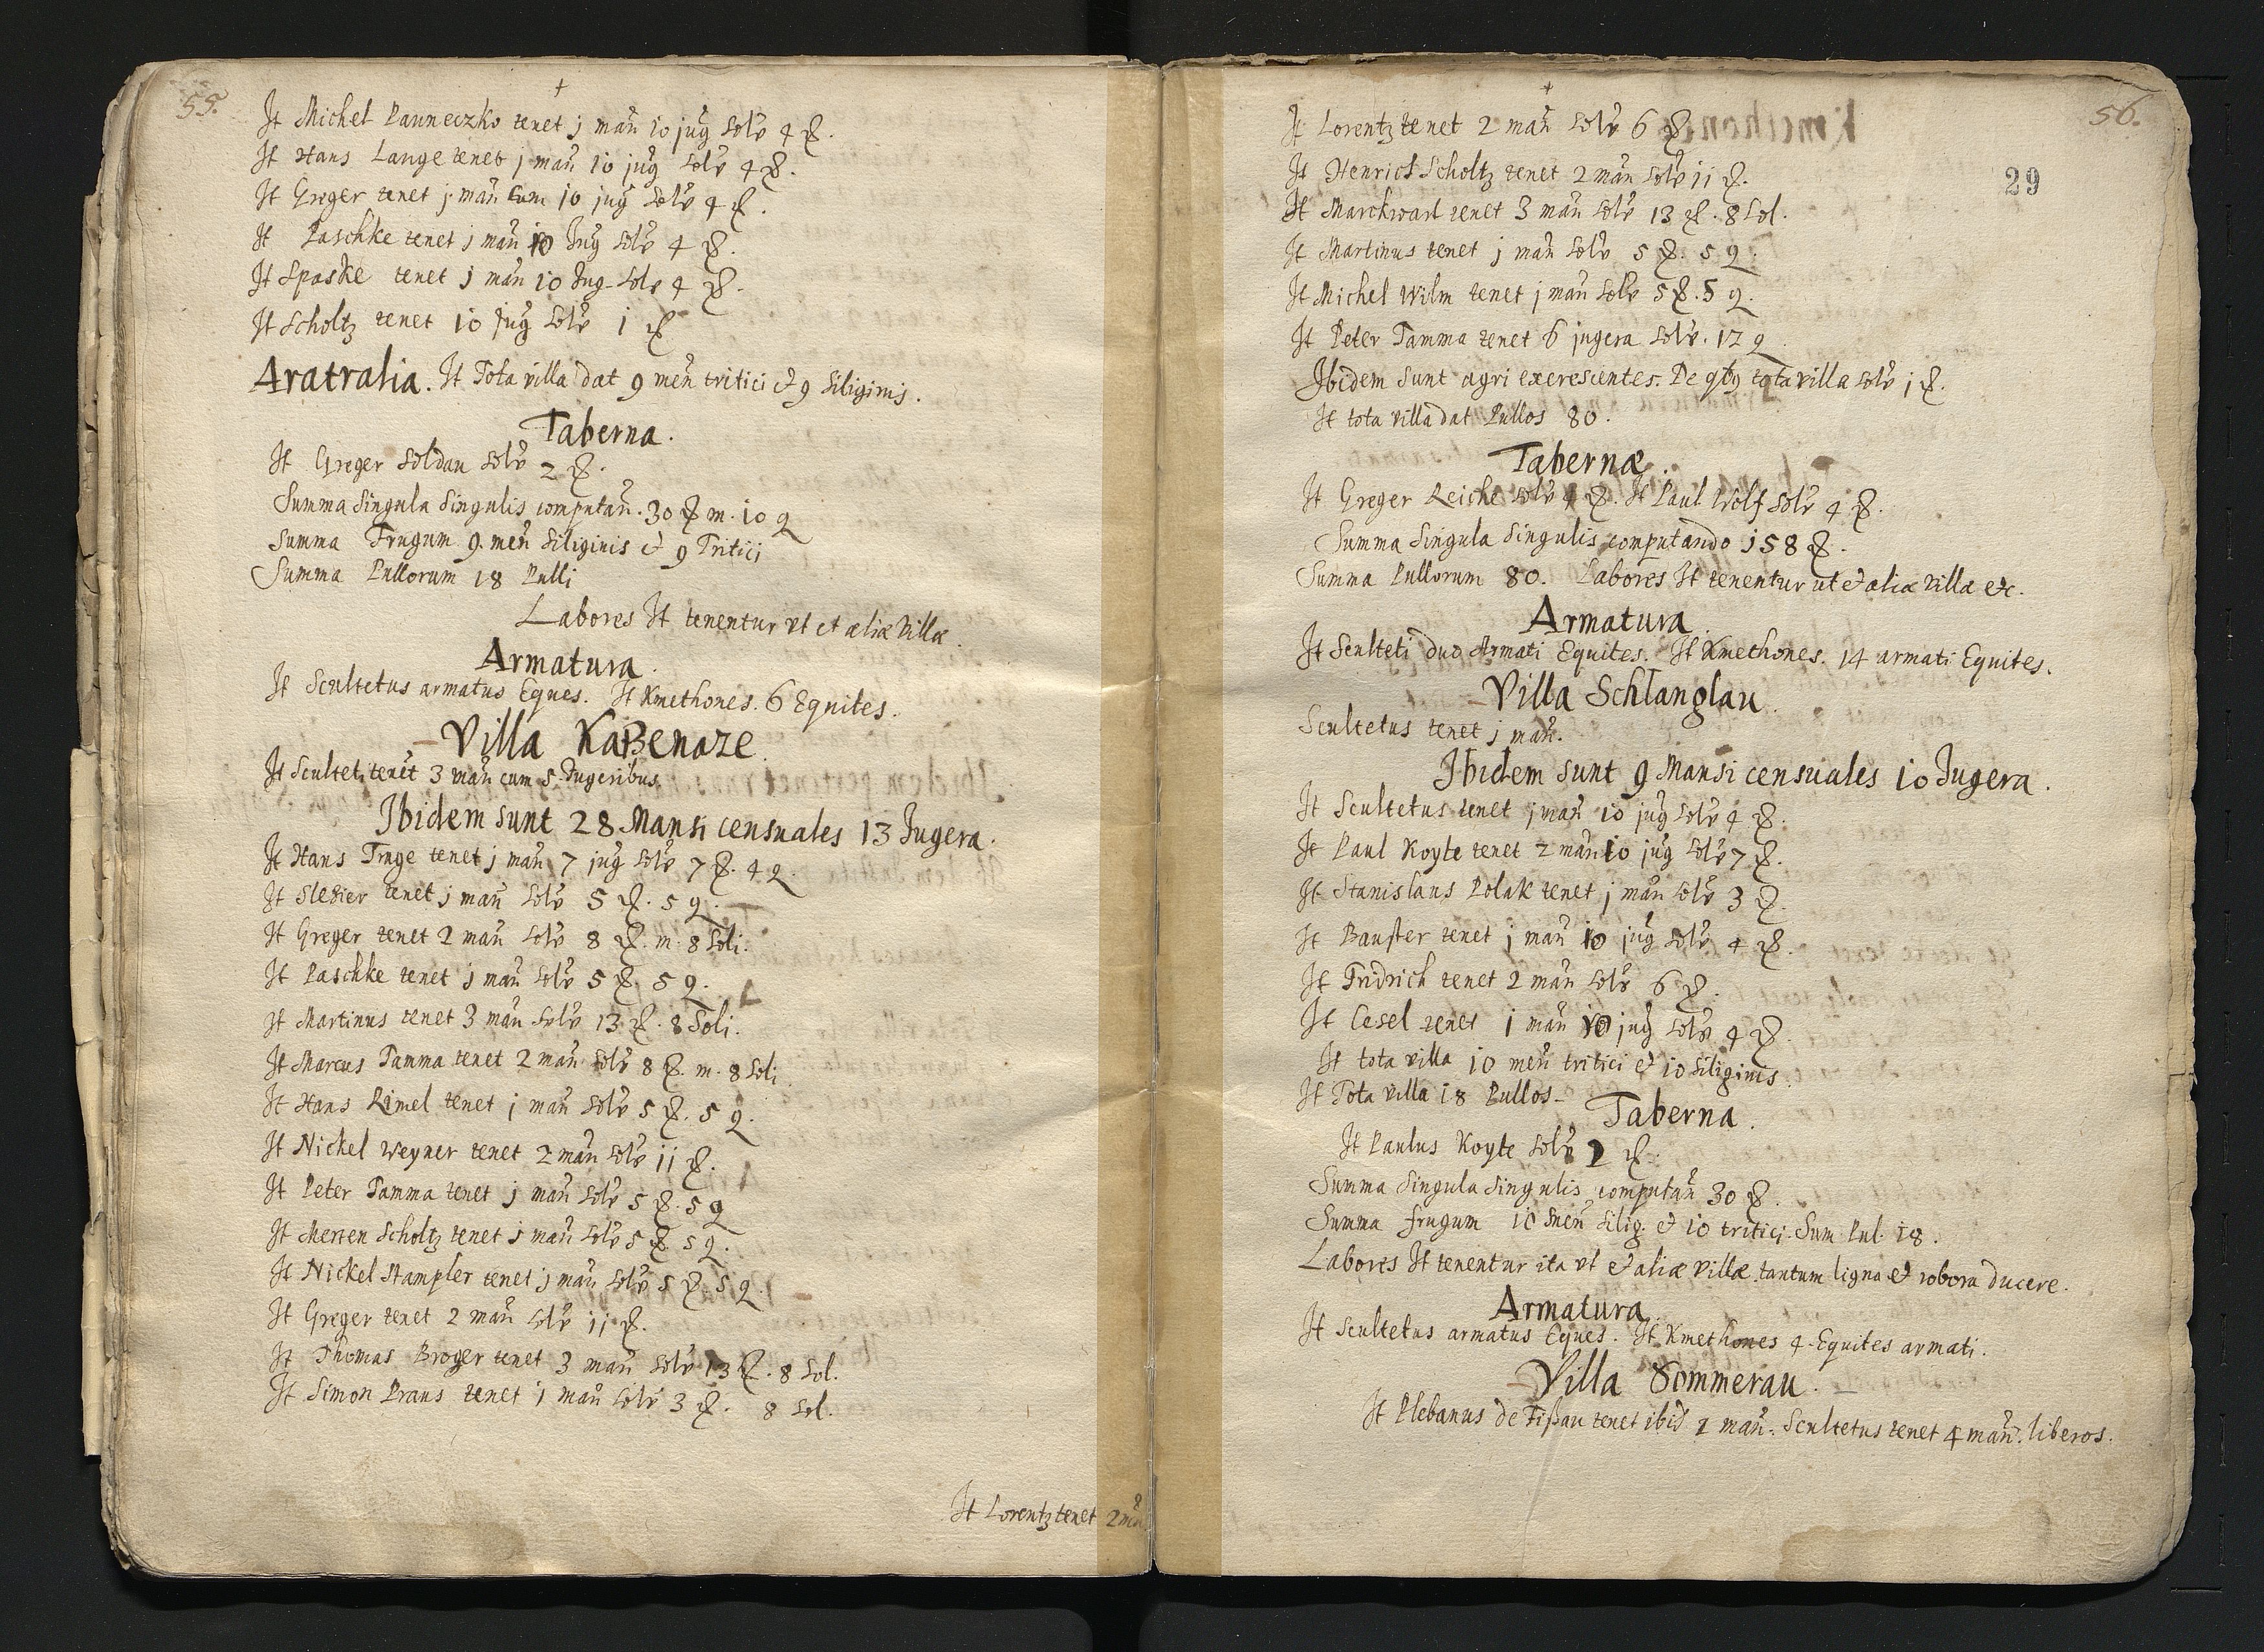 55.
It Michel Pauneczko tenet j mañ 10 jug̃ solv̄ 4 ₰.
It Hans Lange tenet j mañ 10 jug̃ solv̄ 4 ₰.
It Greger tenet j mañ cum 10 jug̃ solv̄ 4 ₰.
It Paschke tenet j mañ 10 Jug̃ solv̄ 4 ₰.
It Spaske tenet j mañ 10 Jug. solv 4 ₰.
It Scholtz tenet 10 Jug̃ solv̄ 1 ₰
Aratralia. It Tota villa dat 9 meñ tritici et 9 Siliginis.
Taberna.
It Greger Soldau solv̄ 2 ₰.
Summa Singula Singulis computañ. 30 ₰ m. 10 q
Summa Frugum 9. meñ Siliginis et 9 Tritici
Summa Pullorum 18 Pulli
Labores It tenentur vt et aliæ villæ.
Armatura.
It Scultetus armatus Eques. It Kmethones. 6 Equites.
Villa Kaßenaze.
It Scultet, tenet 3 mañ cum 5. Jugeribus.
Ibidem sunt 28 Mansi censuales 13 Jugera.
It Hans Truge tenet j mañ 7 jug̃ solv̄ 7 ₰. 4 q.
It Sledier tenet j mañ solv̄ 5 ₰. 5 q.
It Greger tenet 2 mañ solv̄ 8 ₰. m. 8 Soli.
It Paschke tenet j mañ solv̄ 5 ₰. 5 q.
It Martinus tenet 3 mañ solv̄ 13 ₰. 8 Soli.
It Marcus Tamma tenet 2 mañ solv̄ 8 ₰. m. 8 Soli.
It Hans Rimel tenet j mañ solv̄ 5 ₰. 5 q.
It Nickel Weyner tenet 2 mañ solv̄ 11 ₰.
It Peter Tamma tenet j mañ solv̄ 5 ₰. 5 q
It Merten Scholtz tenet j mañ solv̄ 5 ₰ 5 q.
It Nickel Stampler tenet j mañ solv̄ 5 ₰. 5 q.
It Greger tenet 2 mañ solv̄ 11 ₰.
It Thomas Broger tenet 3 mañ solv̄ 13 ₰. 8 Sol.
It Simon Praus tenet 1 mañ solv̄ 3 ₰. 8 Sol.
It Lorentz tenet 2 mañ
56.
29
It Lorentz tenet 2 mañ solv̄ 6 ₰
It Henrich Scholtz tenet 2 mañ solv̄ 11 ₰.
It Marckwart tenet 3 mañ solv̄ 13 ₰. 8 Sol.
It Martinus tenet j mañ solv̄ 5 ₰. 5 q.
It Michel Wilm tenet j mañ solv̄ 5 ₰. 5 q.
It Peter Tamma tenet 6 jugera solv̄. 17 q
Ibidem sunt agri excrescentes. De qbg tota villa solv̄ j ₰.
It tota villa dat Pullos 80.
Tabernæ.
It Greger Reiche solv̄ 4 ₰. It Paul Wolf solv̄ 4 ₰.
Summa Singula Singulis computando 158 ₰.
Summa Pullorum 80. Labores It tenentur ut et aliæ villæ etc.
Armatura
It Sculteti duo Armati Equites. It Kmethones. 14 armati Equites.
Villa Schlanglau.
Scultetus tenet j mañ.
Ibidem sunt 9 Mansi censuales 10 Jugera.
It Scultetus tenet j mañ 10 jug̃ solv̄ 4 ₰.
It Paul Koyte tenet 2 mañ 10 jug̃ solv̄ 7 ₰.
It Stanislaus Polak tenet j mañ solv̄ 3 ₰.
It Bauster tenet j mañ 10 jug̃ solv̄ 4 ₰.
It Fridrich tenet 2 mañ solv̄ 6 ₰.
It Cesel tenet 1 mañ 10 jug̃ solv̄ 4 ₰.
It tota villa 10 meñ tritici et 10 Siliginis.
It Tota villa 18 Pullos.
Taberna.
It Paulus Koyte solv̄ 2 ₰.
Summa Singula Singulis computañ 30 ₰.
Summa frugum 10 meñ Silig. et 10 tritici. Sum Pul. 18.
Labores It tenentur ita vt et aliæ villæ tantum ligna et robora ducere.
Armatura.
It Scultetus armatus Eques. It Kmethones 4. Equites armati.
Villa Sommerau.
It Plebanus de Tißau tenet ibid 2 mañ. Scultetus tenet 4 mañ. liberos.